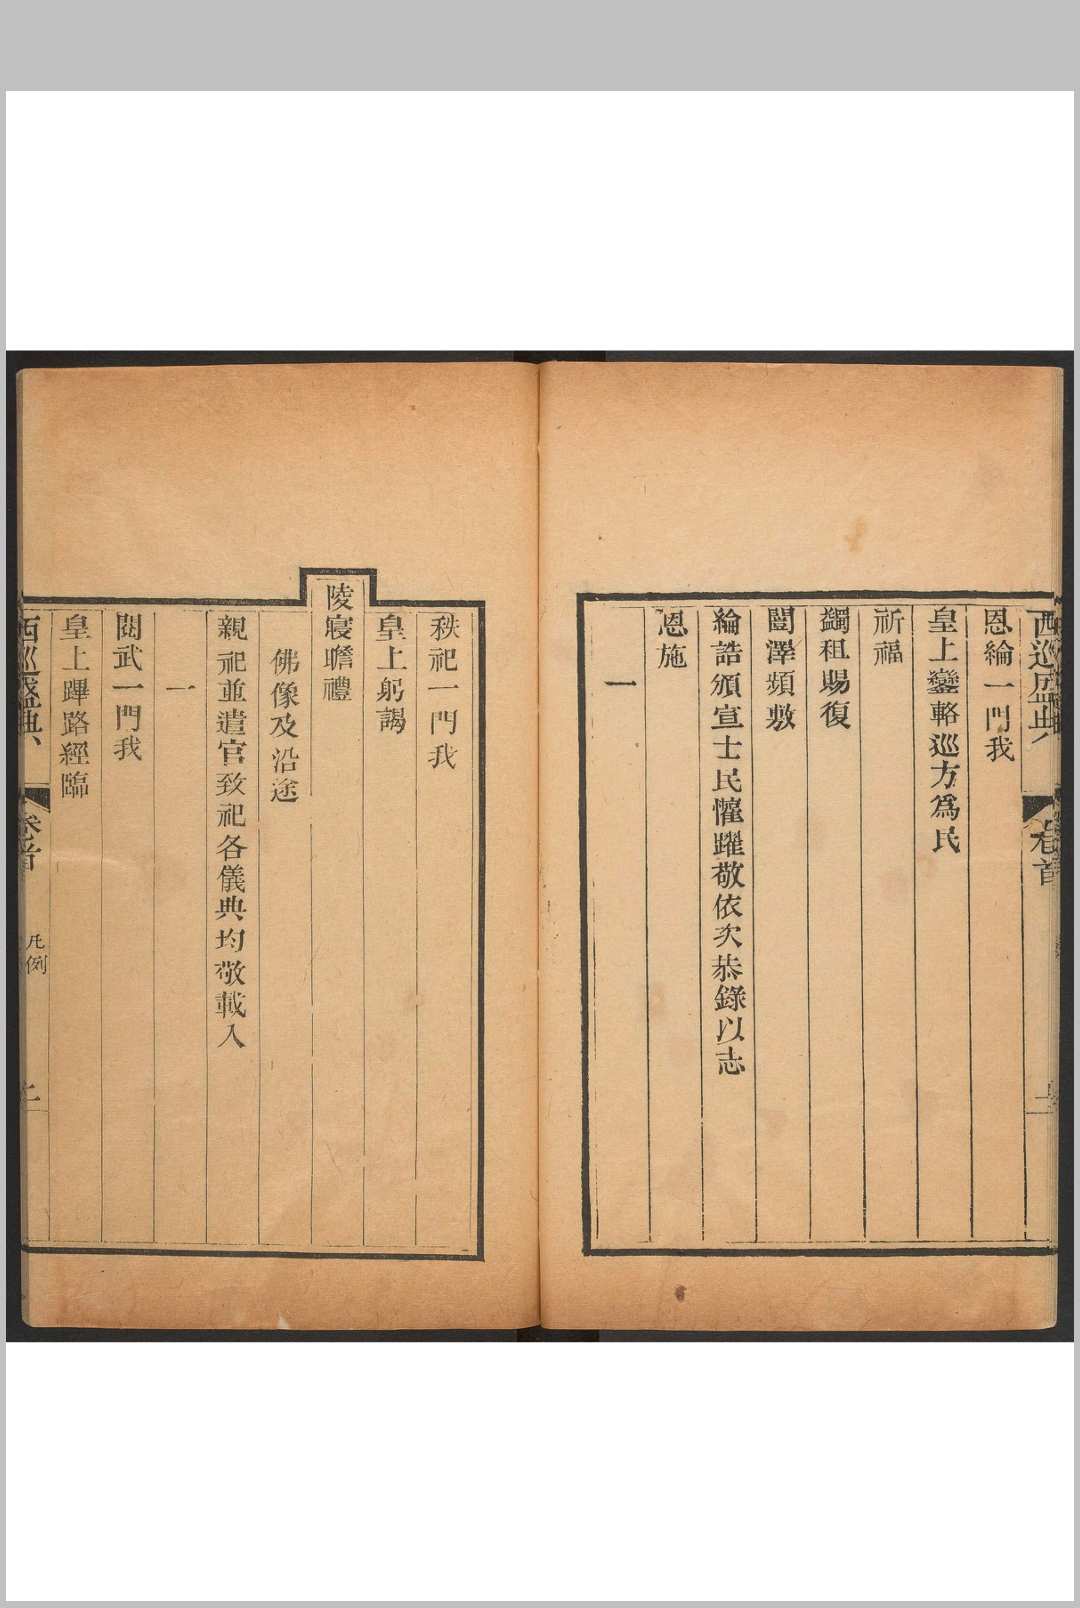 西巡盛典
卷首
恩綸一門我
皇上鑾輅巡方爲民
祈福
蠲租賜復
闓澤頻敷
綸誥頒宣士民懽躍敬依次恭錄以志
恩施
一
秩祀一門我
皇上躬謁
陵寢瞻禮
佛像及沿途
親祀並遣官致祀各儀典均敬載入
一
閱武一門我
皇上蹕路經臨
西巡盛典
卷首
凡例